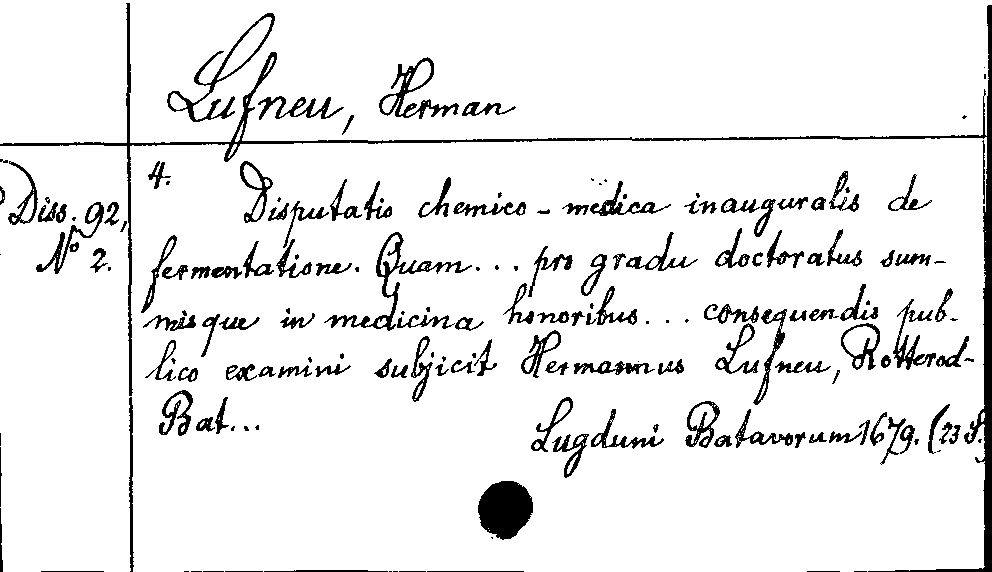 Lufneu, Herman
Diss. 92,
No 2.
4.
Disputatio chemico-medica inauguralis de
fermentatione. Quam... pro gradu doctoratus sum-
misque in medicina honoribus... consequendis pub-
lico examini subjicit Hermannus Lufneu, Rotterod-
Bat...
Lugduni Batavorum 1679. (23 S.)